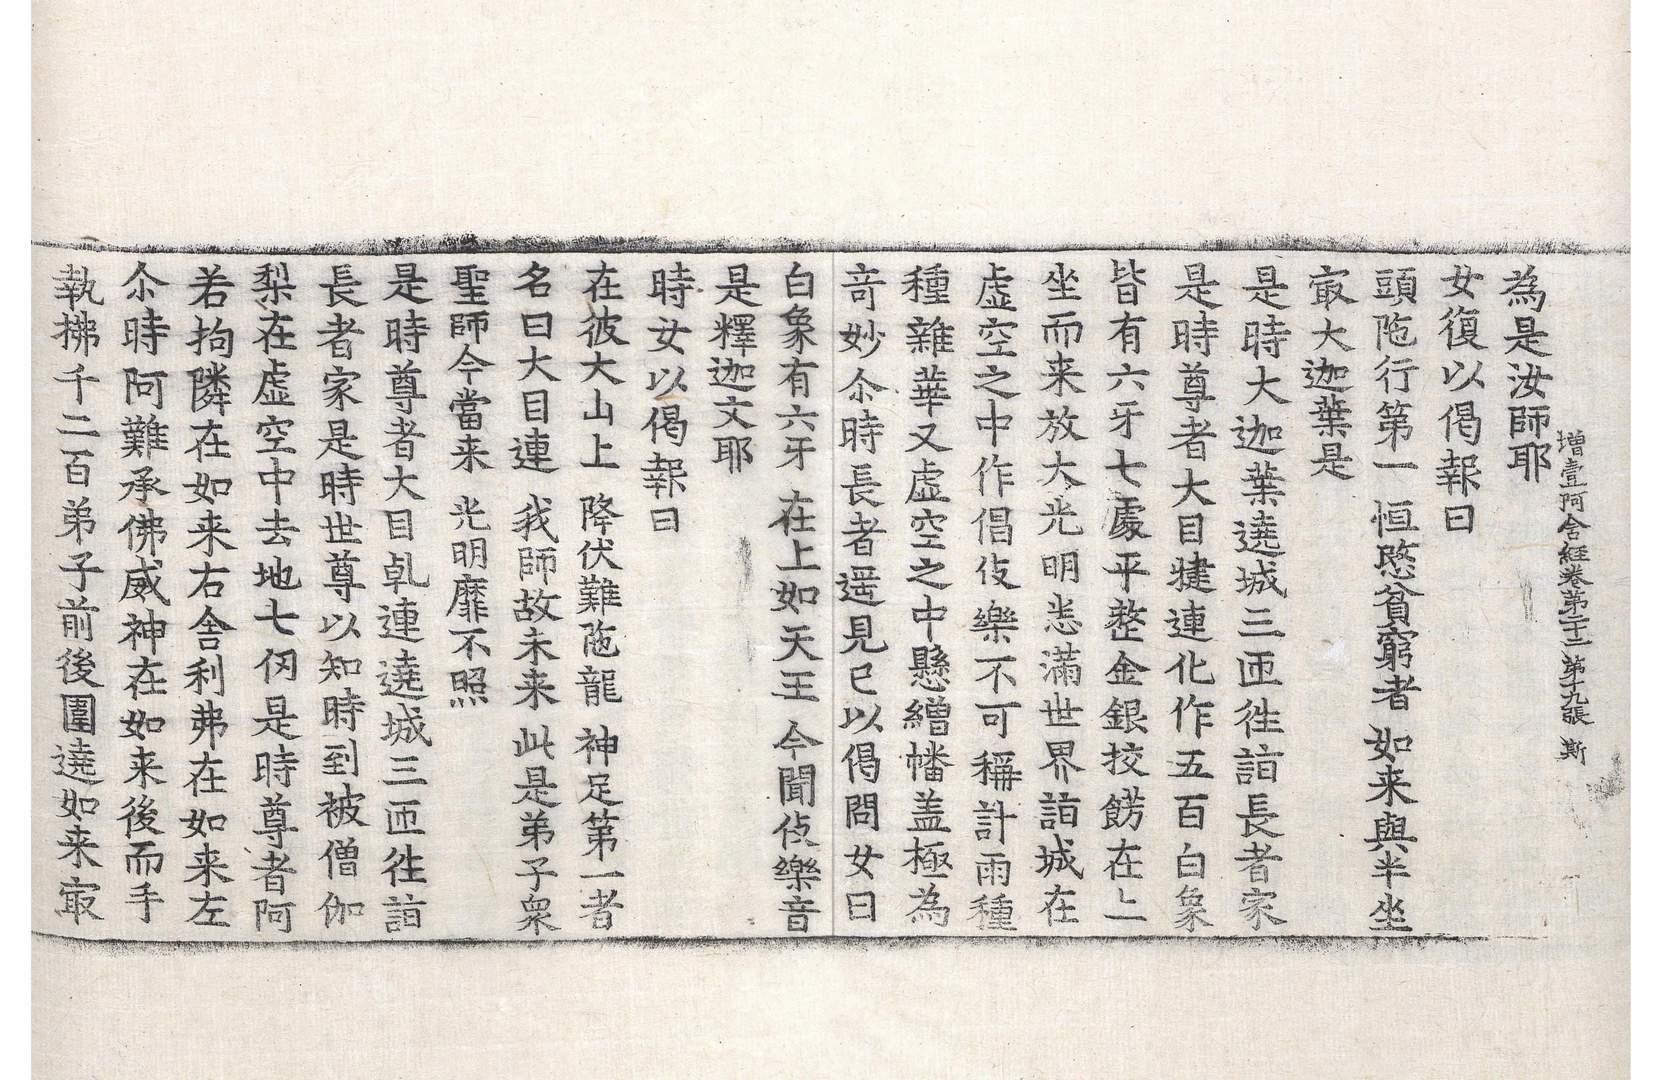 增壹阿含經卷第二十二 第十九張 斯
為是汝師耶
女復以偈報曰
頭陁行第一 恒愍貧窮者 如来與半坐
㝡大迦葉是
是時大迦葉遶城三匝徃詣長者家
是時尊者大目揵連化作五百白象
皆有六牙七處平整金銀挍餝在上
坐而来放大光明悉滿世界詣城在
虛空之中作倡伎樂不可稱計雨種
種雜華又虛空之中懸繒幡盖極為
竒妙尒時長者遥見已以偈問女曰
白象有六牙 在上如天王 今聞伎樂音
是釋迦文耶
時女以偈報曰
在彼大山上 降伏難陁龍 神足第一者
名曰大目連 我師故未来 此是弟子衆
聖師今當来 光明靡不照
是時尊者大目乹連遶城三匝徃詣
長者家是時世尊以知時到被僧伽
梨在虛空中去地七仞是時尊者阿
若拘隣在如来右舍利弗在如来左
尒時阿難承佛威神在如来後而手
執拂千二百弟子前後圍遶如来㝡